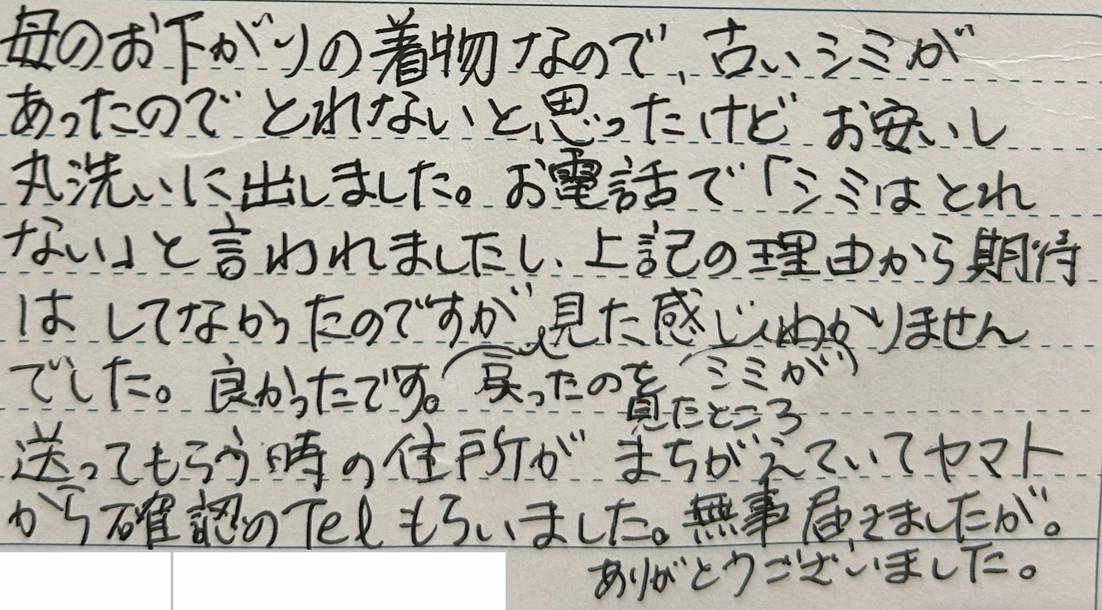 母のお下がりの着物なので、古いシミが
あったので とれないと思ったけど お安いし
丸洗いに出しました。お電話で「シミはとれ
ない」と言われましたし、上記の理由から期待
は してなかったのですが、見た感じわかりません
でした。良かったです。(戻ったのを (シミが)
見たところ
送ってもらう時の住所が まちがえていてヤマト
から確認のTelもらいました。無事届きましたが。
ありがとうございました。